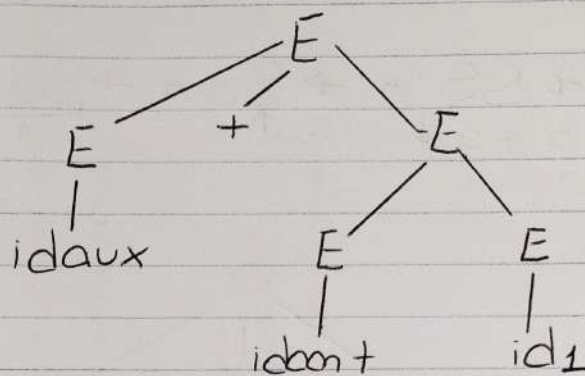 E
E + E
idaux E E
idcont id1